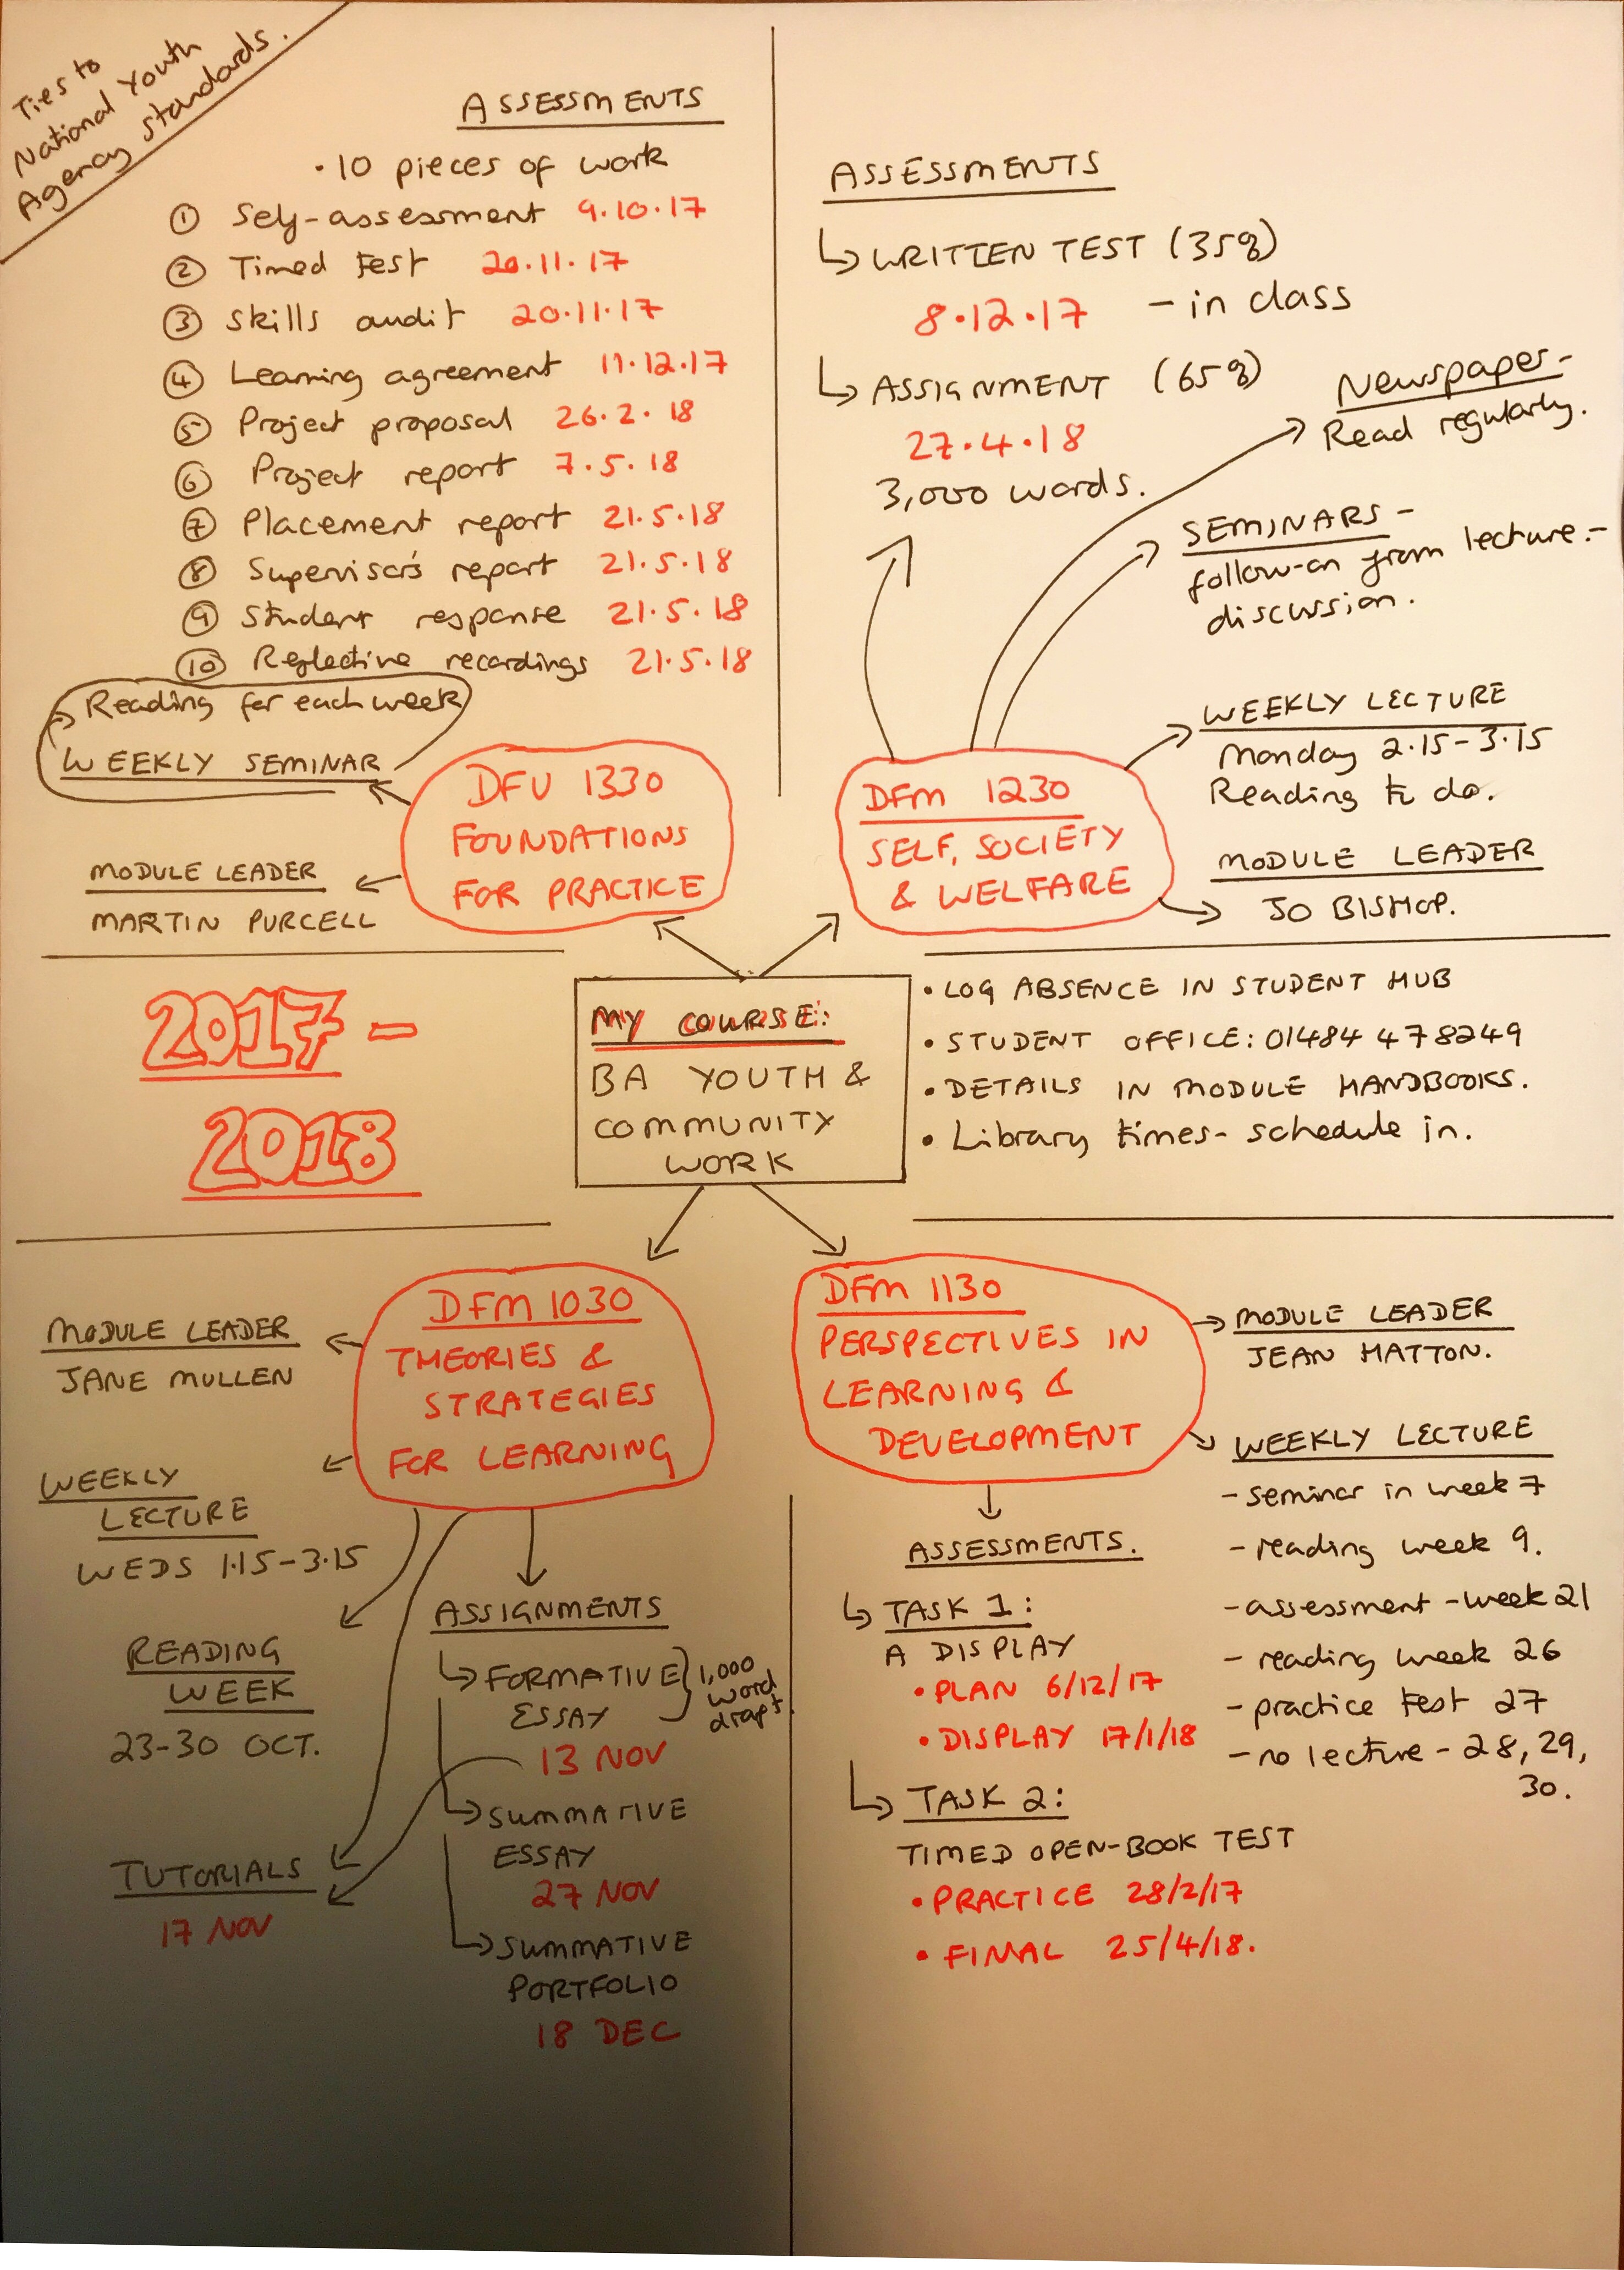 Ties to
National Youth
Agency standards.
ASSESSMENTS
• 10 pieces of work
① Self-assessment 9.10.17
② Timed test 20.11.17
③ Skills audit 20.11.17
④ Learning agreement 11.12.17
⑤ Project proposal 26.2.18
⑥ Project report 7.5.18
⑦ Placement report 21.5.18
⑧ Supervisor's report 21.5.18
⑨ Student response 21.5.18
⑩ Reflective recordings 21.5.18
Reading for each week
WEEKLY SEMINAR
DFU 1330
FOUNDATIONS
FOR PRACTICE
MODULE LEADER
MARTIN PURCELL
ASSESSMENTS
↳ WRITTEN TEST (35%)
8.12.17 - in class
↳ ASSIGNMENT (65%)
27.4.18
3,000 words.
Newspaper-
Read regularly.
SEMINARS -
follow-on from lecture -
discussion.
WEEKLY LECTURE
Monday 2.15-3.15
Reading to do.
MODULE LEADER
JO BISHOP.
DFM 1230
SELF, SOCIETY
& WELFARE
2017-
2018
MY COURSE:
BA YOUTH &
COMMUNITY
WORK
• LOG ABSENCE IN STUDENT HUB
• STUDENT OFFICE: 01484 478249
• DETAILS IN MODULE HANDBOOKS.
• Library times - schedule in.
DFM 1030
THEORIES &
STRATEGIES
FOR LEARNING
MODULE LEADER
JANE MULLEN
WEEKLY
LECTURE
WEDS 1.15-3.15
READING
WEEK
23-30 OCT.
TUTORIALS
17 NOV
ASSIGNMENTS
↳ FORMATIVE
ESSAY
1,000
word
draft
13 NOV
↳ SUMMATIVE
ESSAY
27 NOV
↳ SUMMATIVE
PORTFOLIO
18 DEC
DFM 1130
PERSPECTIVES IN
LEARNING &
DEVELOPMENT
MODULE LEADER
JEAN HATTON.
WEEKLY LECTURE
- seminar in week 7
- reading week 9.
- assessment - week 21
- reading week 26
- practice test 27
- no lecture - 28, 29,
30.
ASSESSMENTS.
↳ TASK 1:
A DISPLAY
• PLAN 6/12/17
• DISPLAY 17/1/18
↳ TASK 2:
TIMED OPEN-BOOK TEST
• PRACTICE 28/2/17
• FINAL 25/4/18.